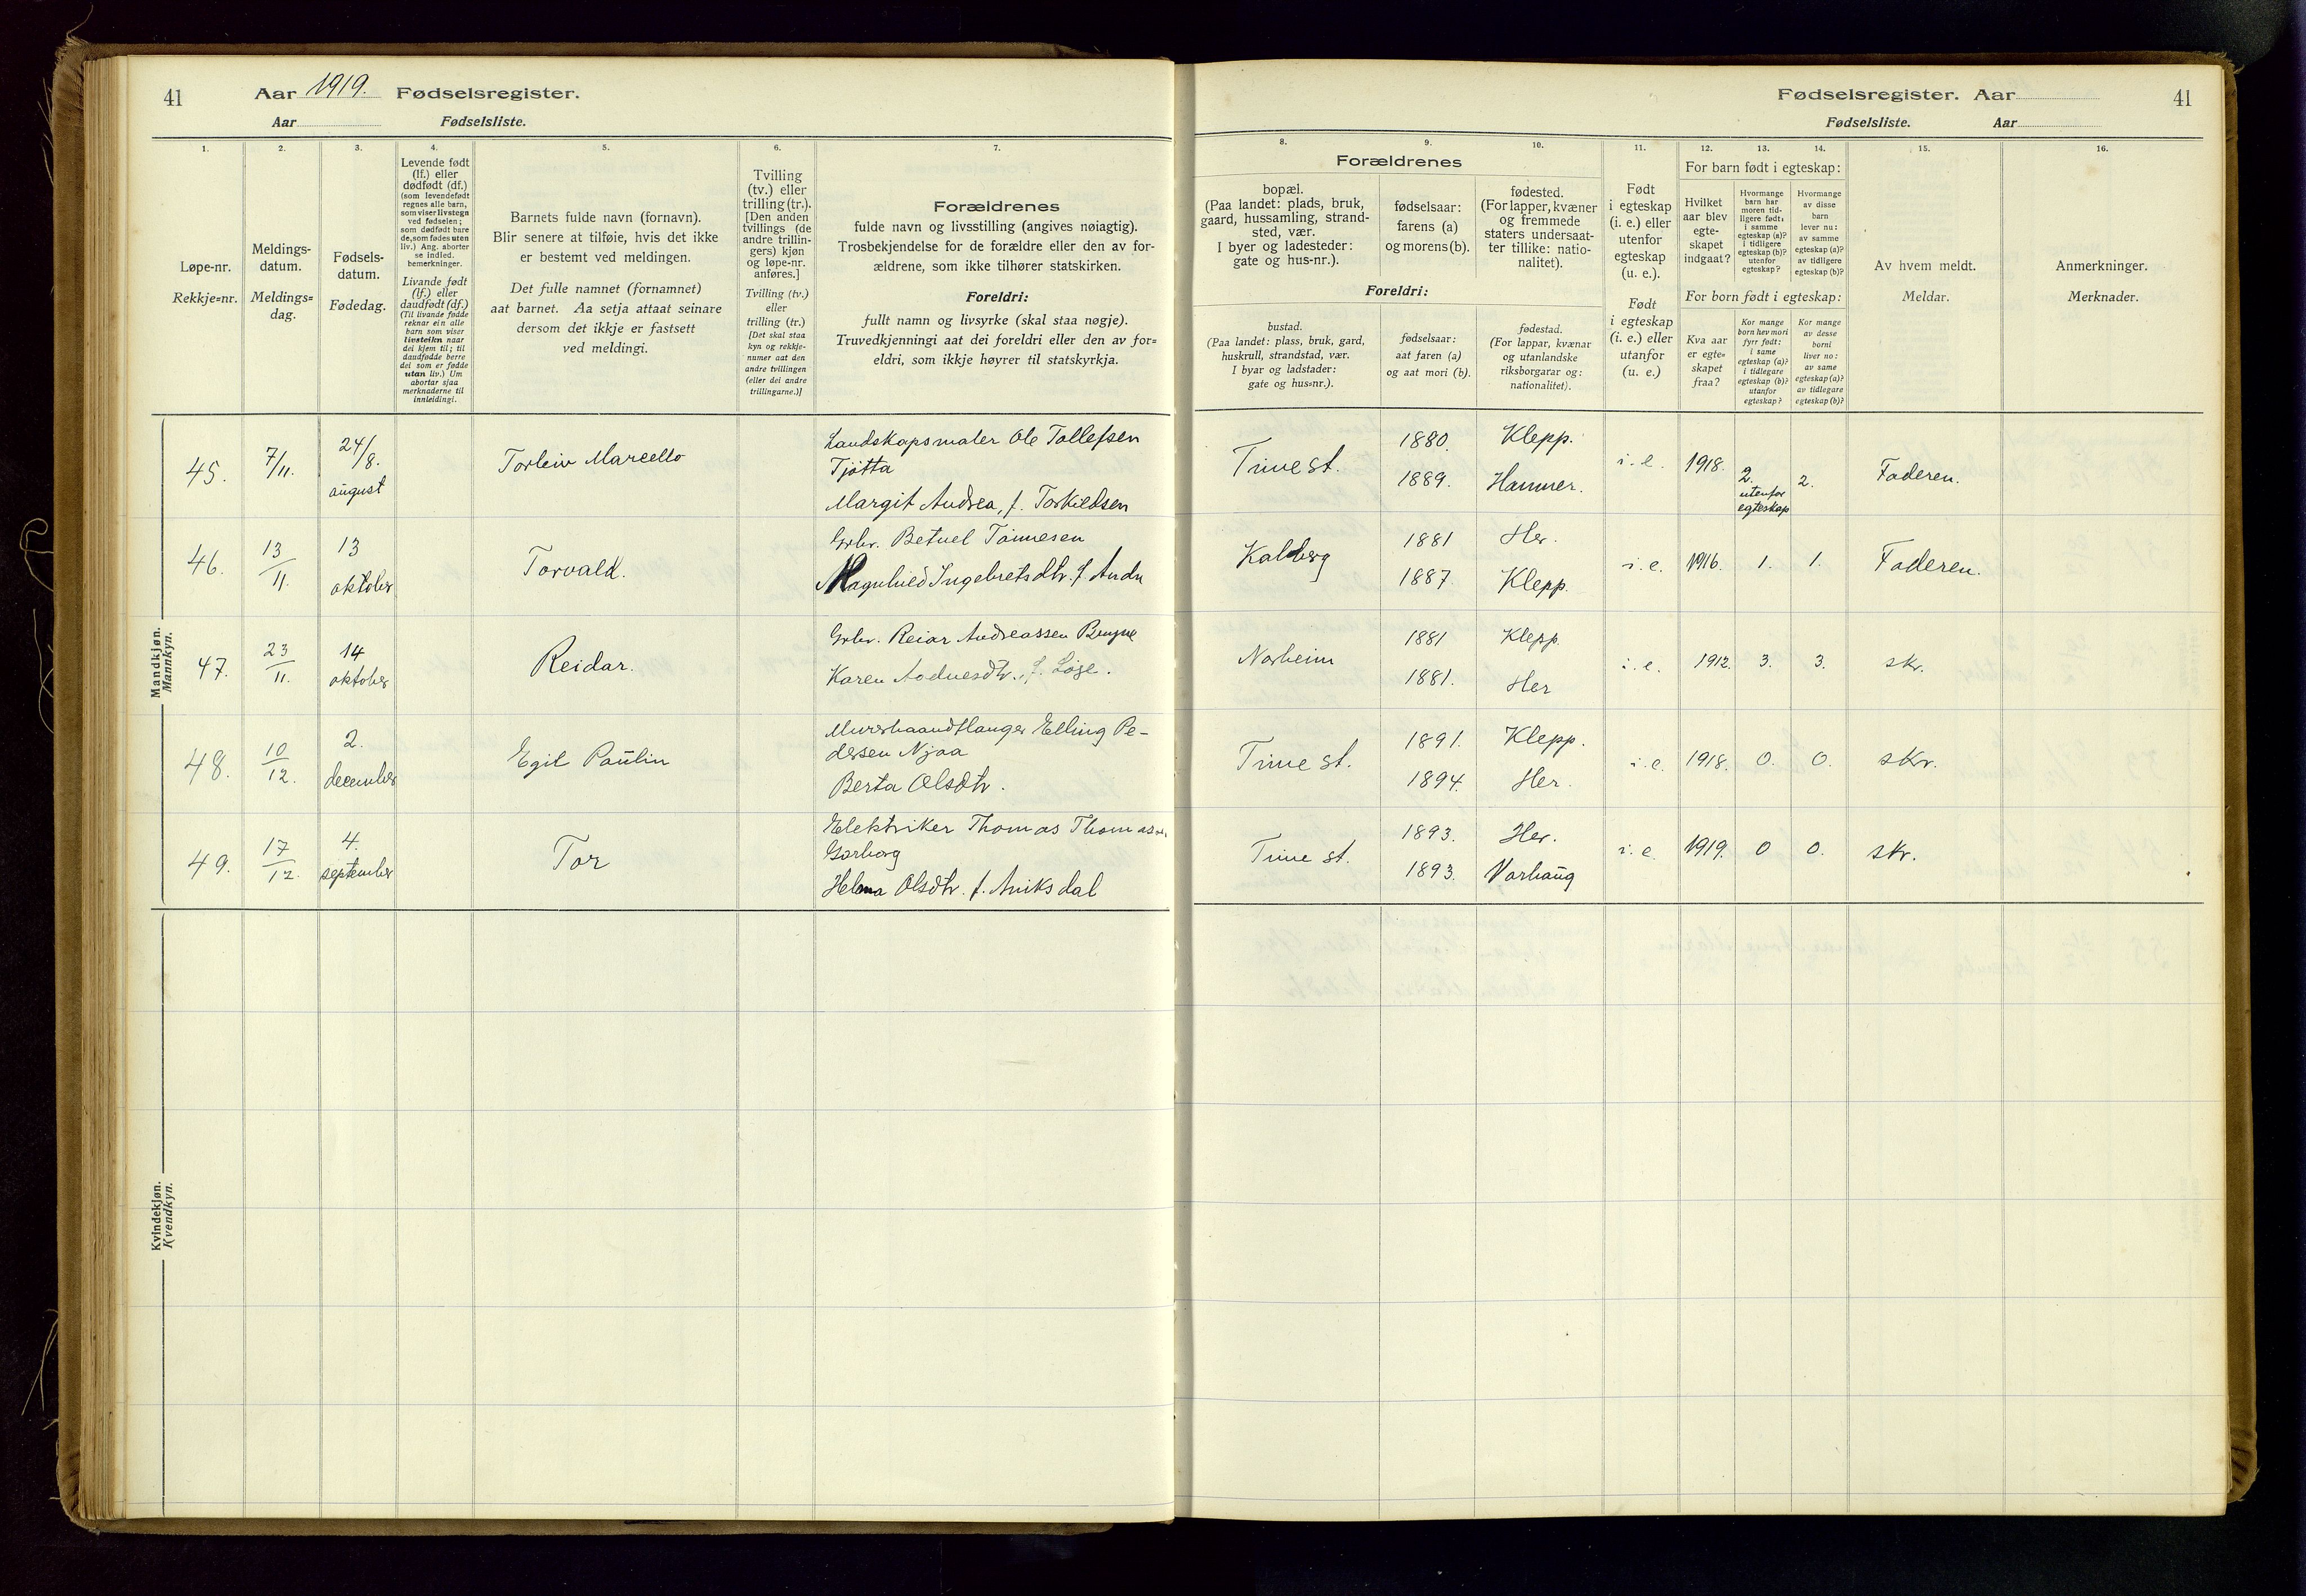 41
Aar 1919. Fødselsregister.
Aar Fødselsliste.
1.
2.
3.
4.
5.
6.
7.
Løpe-nr.
Rekkje=nr.
Meldings-
datum.
Meldings=
dag.
Fødsels-
datum.
Fødedag.
Levende født
(lf.) eller
dødfødt (df.)
(som levendefødt
regnes alle barn,
som viser livstegn
ved fødselen;
som dødfødt bare
de, som fødes uten
liv.) Ang. aborter
se indled.
bemerkninger.
Livande født
(lf.) eller
daudfødt (df.)
(Til livande fødde
reknar ein alle
barn som viser
livsteikn naar
dei kjem til; til
daudfødde berre
dei som er fødde
utan liv.) Um
abortar sjaa
merknaderne til
innleidingi.
Barnets fulde navn (fornavn).
Blir senere at tilføie, hvis det ikke
er bestemt ved meldingen.
Det fulle namnet (fornamnet)
aat barnet. Aa setja attaat seinare
dersom det ikkje er fastsett
ved meldingi.
Tvilling
(tv.) eller
trilling (tr.).
[Den anden
tvillings (de
andre trillin-
gers) kjøn
og løpe-nr.
anføres.]
Tvilling (tv.)
eller
trilling (tr.)
[Det skal staa
kyn og rekkje-
numer aat den
andre tvillingen
(eller dei andre
trillingarne.)]
Forældrenes
fulde navn og livsstilling (angives nøiagtig).
Trosbekjendelse for de forældre eller den av for-
ældrene, som ikke tilhører statskirken.
Foreldri:
fullt namn og livsyrke (skal staa nøgje).
Truvedkjenningi aat dei foreldri eller den av for=
eldri, som ikkje høyrer til statskyrkja.
Mandkjøn.
Mannkyn.
45.
7/11.
24/8.
august
Torleiv Marcello
Landskapsmaler Ole Tollefsen
Tjøtta
Margit Andrea, f. Torkildsen
46.
13
11.
13
oktober
Torvald.
Grbr. Betuel Tønnesen
Magnhild Ingebretsdtr. f
47.
23
11.
14
oktober
Reidar.
Grbr. Reiar Andreassen Bryne
Karen Aadnesdtr., f. Løge.
48.
10
12.
2.
december
Egil Paulin
Murerhaandtlanger Elling Pe-
dersen Njaa
Berta Olsdtr.
49.
17
12.
4.
september
Tor
Elektriker Thomas
Garborg
Helena Olsdtr. f. Aniksdal
Kvindekjøn.
Kvendkyn.
Fødselsregister. Aar
41
Fødselsliste. Aar
8.
9.
10.
11.
12.
13.
14.
15.
16.
Forældrenes
bopæl.
(Paa landet: plads, bruk,
gaard, hussamling, strand-
sted, vær.
I byer og ladesteder:
gate og hus-nr.).
fødselsaar:
farens (a)
og morens (b).
fødested.
(For lapper, kvæner
og fremmede
staters undersaat-
ter tillike: natio-
nalitet).
Foreldri:
bustad.
(Paa landet: plass, bruk, gard,
huskrull, strandstad, vær.
I byar og ladstader:
gate og hus=nr.).
fødselsaar:
aat faren (a)
og aat mori (b).
fødestad.
(For lappar, kvænar
og utanlandske
riksborgarar og:
nationalitet).
Født
i egteskap
(i. e.) eller
utenfor
egteskap
(u. e.).
Født
i egteskap
(i. e.) eller
utanfor
(u. e.)
For barn født i egteskap:
Hvilket
aar blev
egte-
skapet
indgaat?
Hvormange
barn har
moren tid-
ligere født:
i samme
egteskap (a)?
i tidligere
egteskap (b)?
utenfor
egteskap?
Hvormange
av disse
barn
lever nu:
av samme
egteskap (a)?
av tidligere
egteskap (b)?
For born født i egteskap:
Kva aar
er egte=
skapet
fraa?
Kor mange
born hev mori
fyrr født:
i same
egteskap (a)?
i tidlegare
egteskap (b)?
utanfor
egteskap?
Kor mange
av desse
borni
liver no:
av same
egteskap (a)?
av tidlegare
egteskap (b)?
Av hvem meldt.
Meldar.
Anmerkninger.
Merknader.
Time st.
1880.
1889.
Klepp.
Hammer.
i. e.
1918.
2.
utenfor
egteskap
2.
Faderen.
Kalberg
1881
1887.
Her.
Klepp.
i. e.
1916.
1.
1.
Faderen.
Norheim
1881
1881.
Klepp.
Her
i. e.
1912.
3.
3.
skr.
Time st.
1891.
1894.
Klepp.
Her.
i. e.
1918.
0.
0.
skr.
Time st.
1893.
1893.
Her.
Varhaug
i. e.
1919.
0
0.
skr.